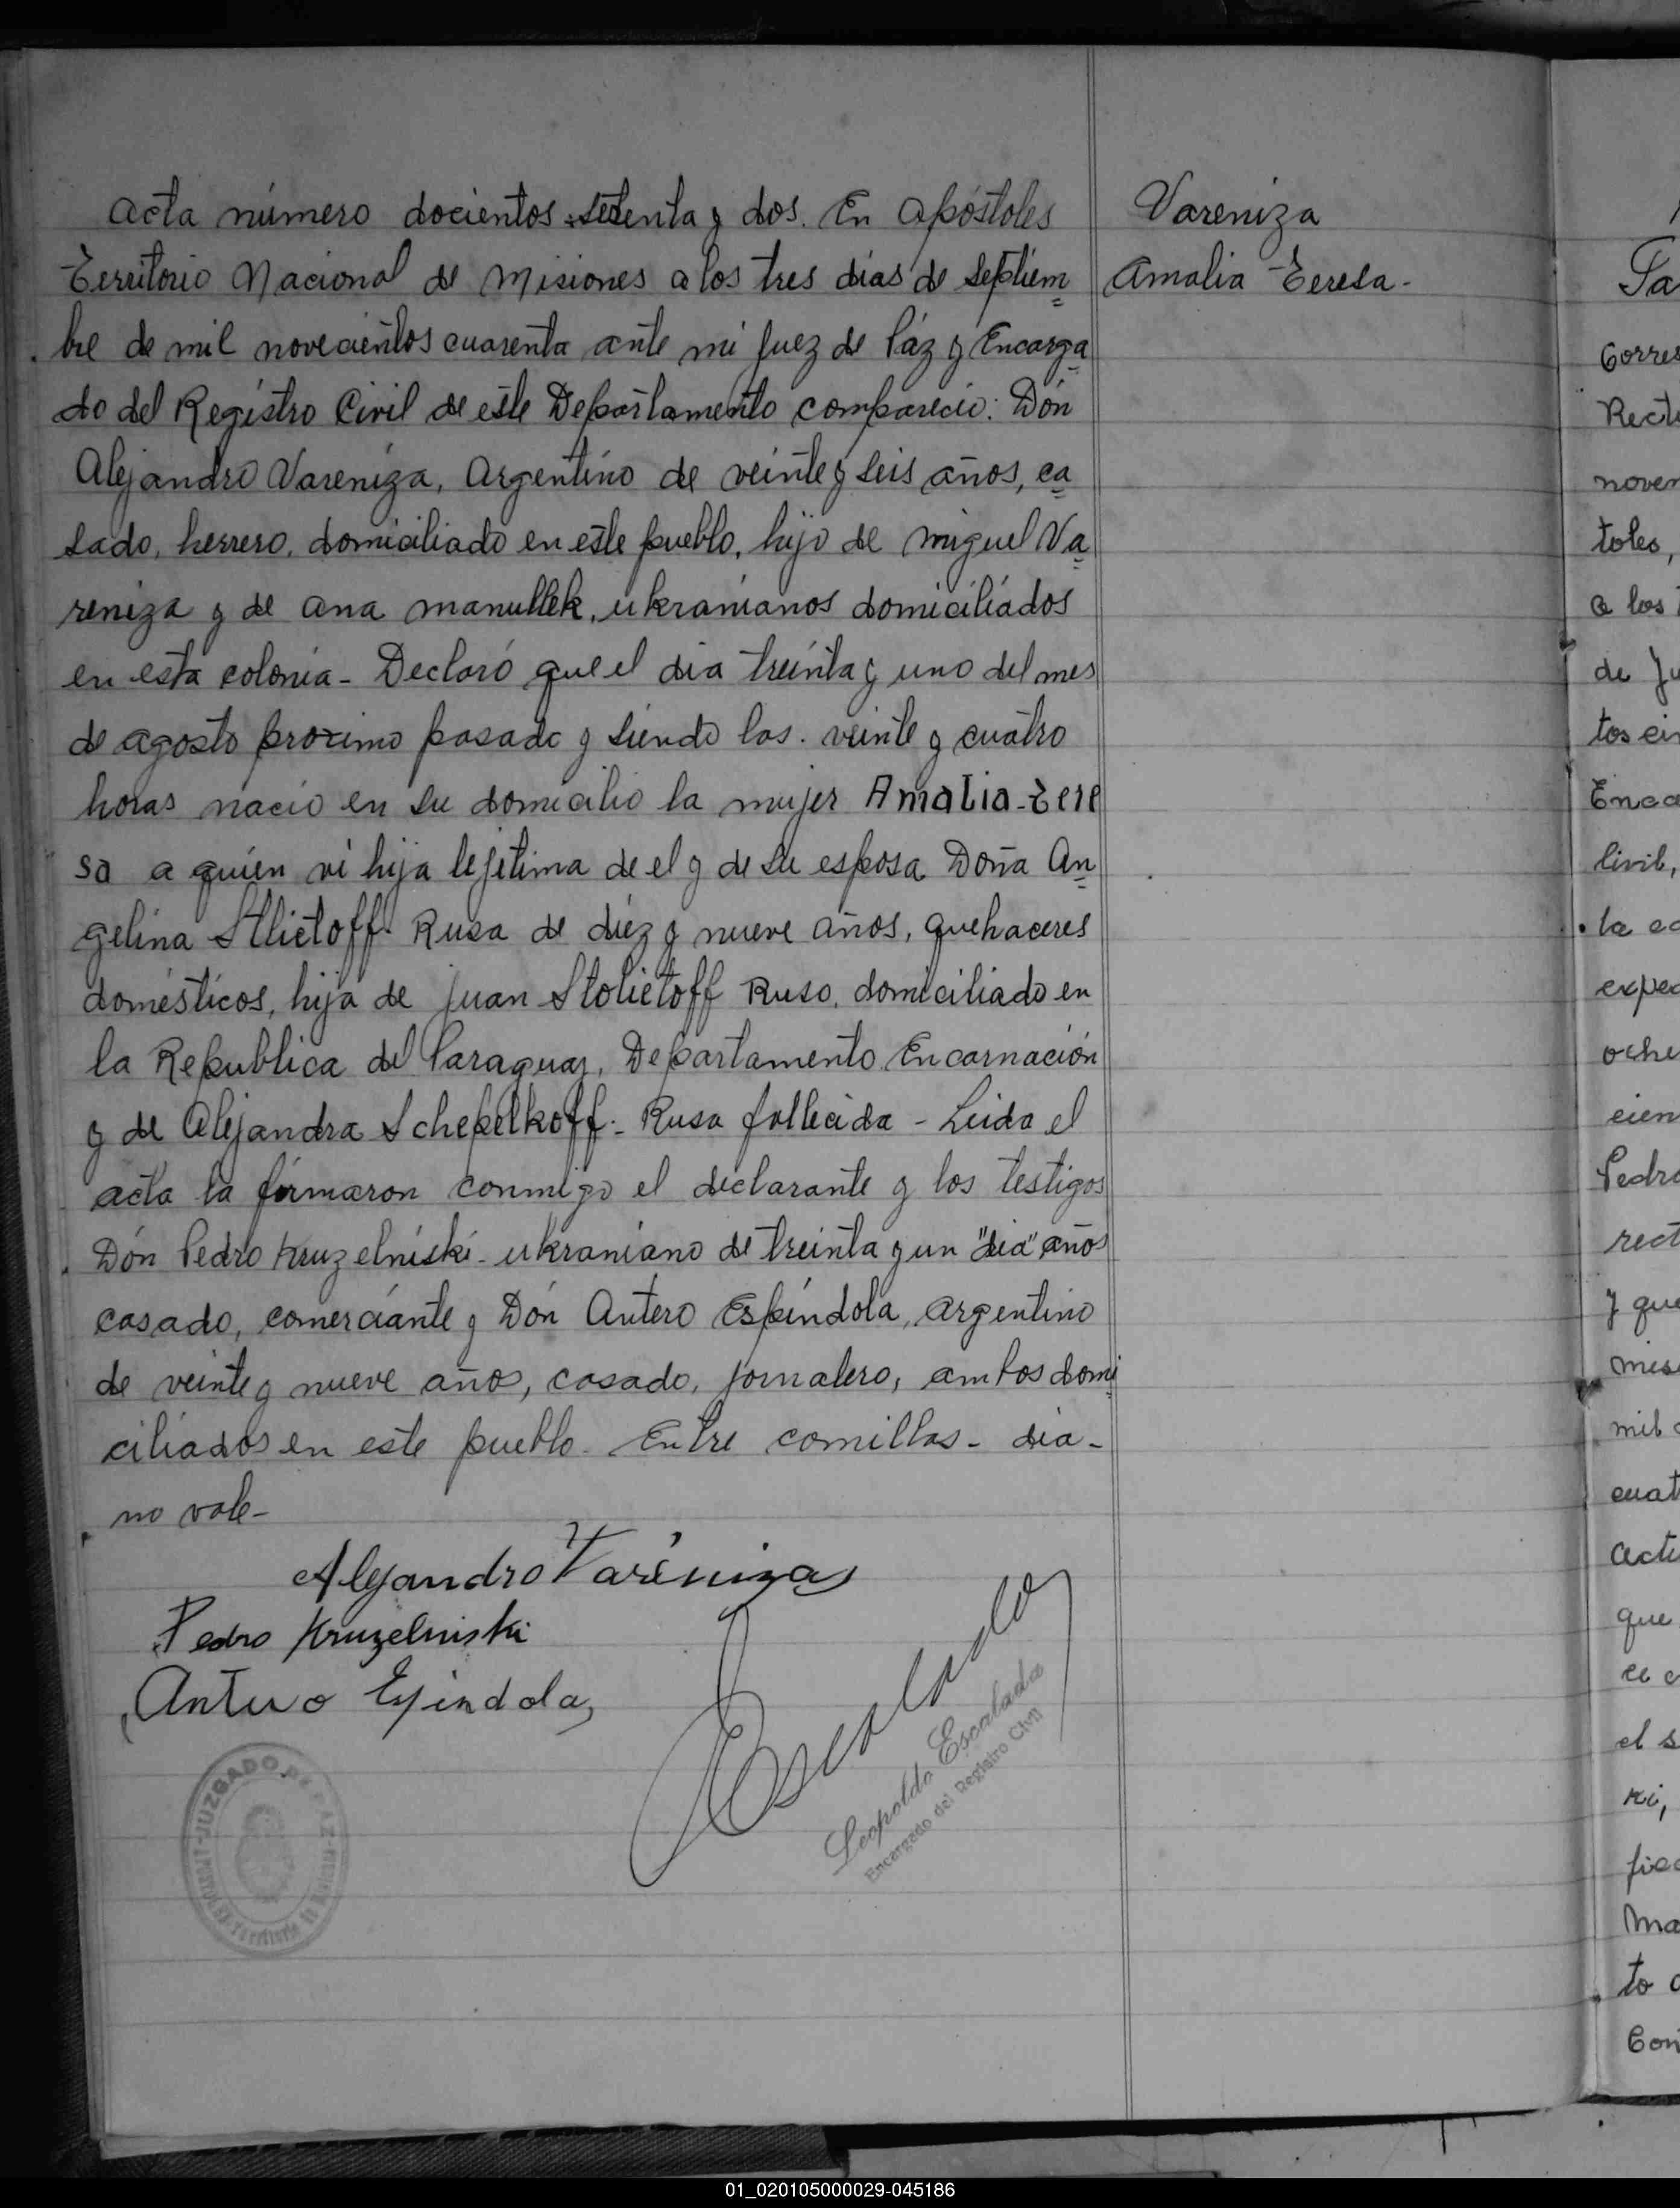 Acta número docientos setenta y dos. En Apóstoles
Territorio Nacional de Misiones a los tres dias de Septiem
bre de mil novecientos cuarenta ante mi Juez de Páz y Encarga
do del Registro Civil de este Departamento comparecio: Dón
Alejandro Vareniza, Argentino de veinte y seis años, ca
sado, herrero, domiciliado en este pueblo, hijo de Miguel Va
reniza y de Ana Manullek, ukranianos domiciliádos
en esta colonia - Declaró que el dia treinta y uno del mes
de agosto proximo pasado y siendo las. veinte y cuatro
horas nacio en su domicilio la mujer Amalia-Tere
sa a quien vi hija lejitima de el y de su esposa Doña An
gelina Stlietoff Rusa de diez y nueve años, quehaceres
domésticos, hija de Juan Stolietoff Ruso, domiciliado en
la Republica del Paraguay, Departamento Encarnación
y de Alejandra Schepelkoff - Rusa fallecida - Leida el
acta la firmaron conmigo el declarante y los testigos
Dón Pedro Kruzelniski - ukraniano de treinta y un "dia" años
casado, comerciante y Dón Antero Espíndola, argentino
de veinte y nueve años, casado, jornalero, ambos domi
ciliados en este pueblo - Entre comillas - dia -
no vale -
Alejandro Vareniza
Pedro Kruzelniski
Antero Espindola
Escalada
Leopoldo Escalada
Encargado del Registro Civil
JUZGADO DE PAZ
Vareniza
Amalia Teresa.
Corres
Rect
noven
toles,
a los
de Ju
tos ci
Enca
Civil,
la
exped
oche
cien
Pedro
rect
y que
mis
mil
cuat
acta
que
el s
Ma
to
Con
01_020105000029-045186